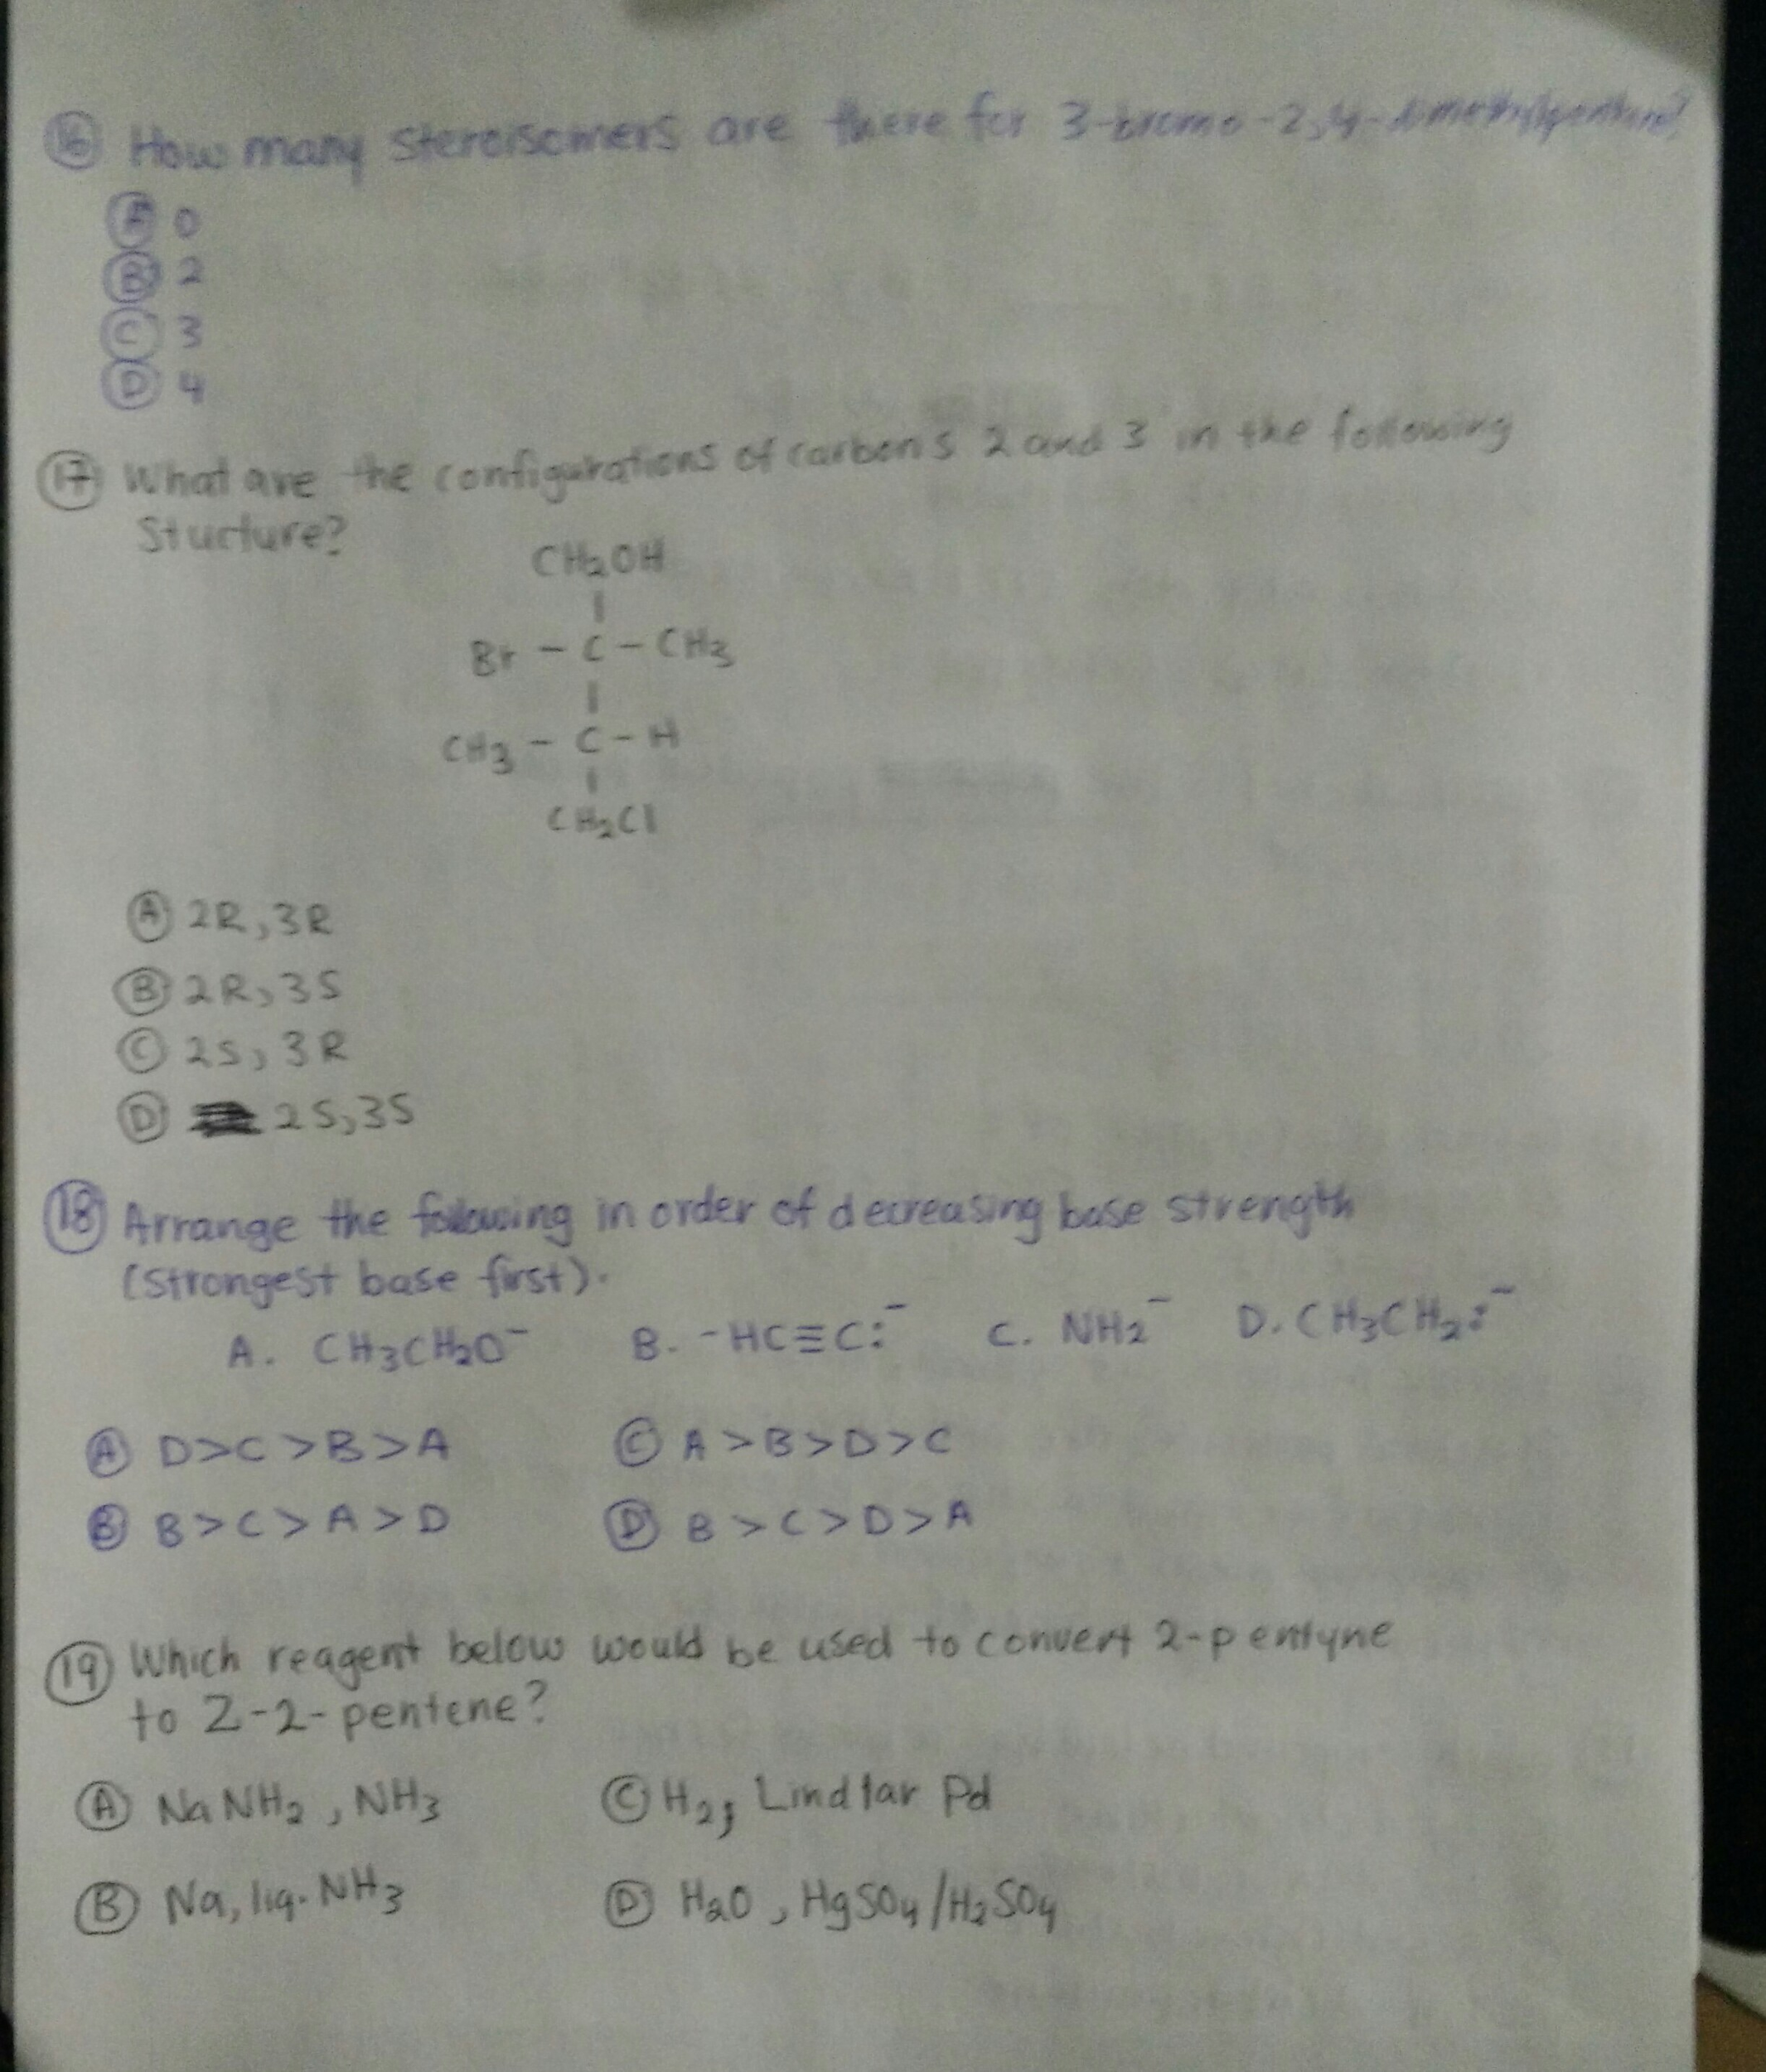 16 How many stereoisomers are there for 3-bromo-2,4-dimethylpentane?
A 0
B 2
C 3
D 4
17 What are the configurations of carbons 2 and 3 in the following
Sturture?
CH₂OH
|
Br - C - CH₃
|
CH₃ - C - H
|
CH₂Cl
A 2R, 3R
B 2R, 3S
C 2S, 3R
D 2S, 3S
18 Arrange the following in order of decreasing base strength
(Strongest base first).
A. CH₃CH₂O⁻ B. -HC≡C:⁻ C. NH₂⁻ D. CH₃CH₂:⁻
A D>C>B>A C A>B>D>C
B B>C>A>D D B>C>D>A
19 Which reagent below would be used to convert 2-pentyne
to Z-2-pentene?
A NaNH₂, NH₃ C H₂; Lindlar Pd
B Na, liq. NH₃ D H₂O, HgSO₄/H₂SO₄